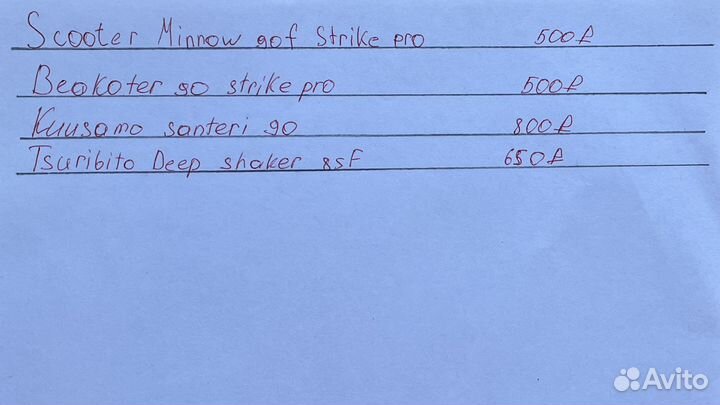 Scooter Minnow 90f Strike pro 500₽
Beakoter 90 strike pro 500₽
Kuusamo santeri 90 800₽
Tsuribito Deep shaker 85F 650₽
Avito